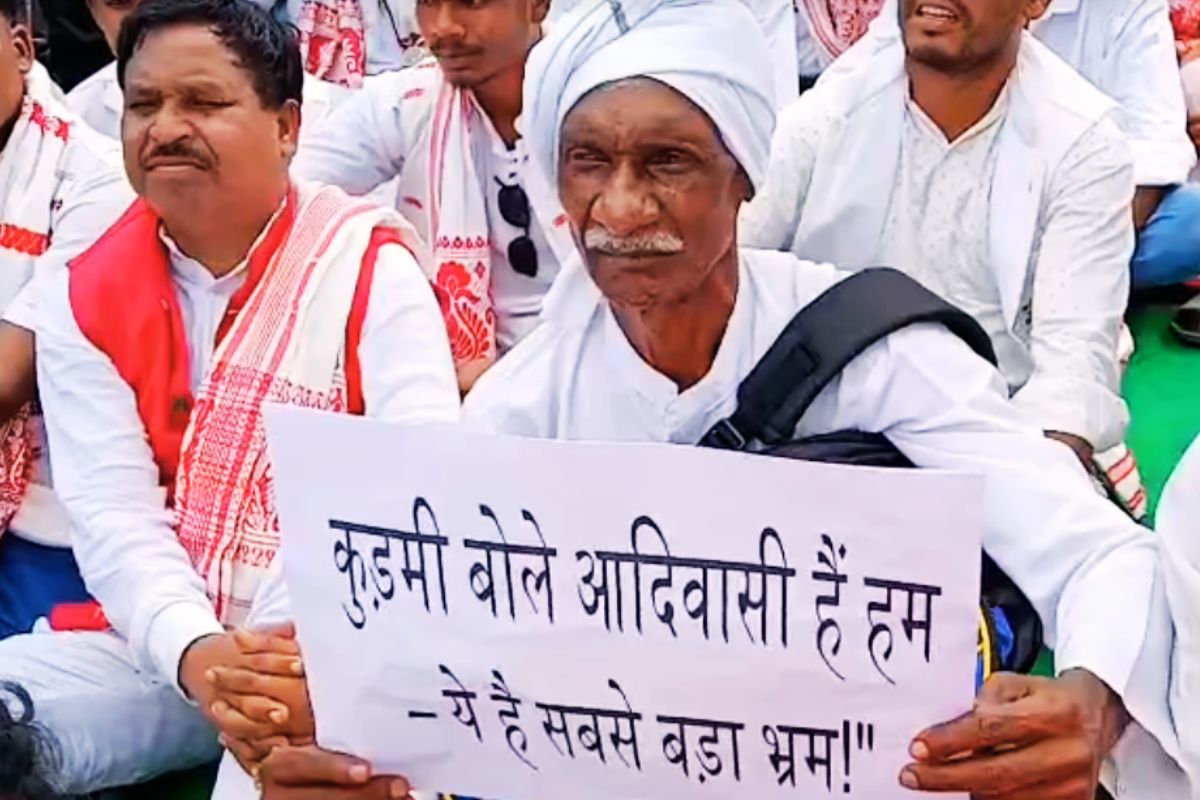 कुड़मी बोले आदिवासी हैं हम
– ये है सबसे बड़ा भ्रम!"